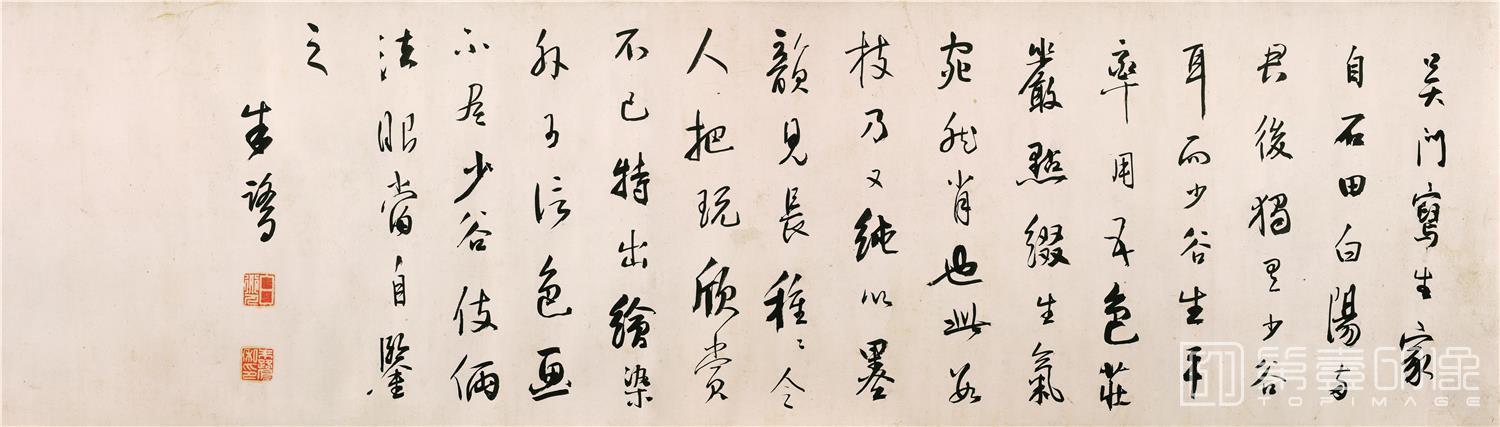 吳門寫生家
自石田白陽兩
君後獨少谷
耳而少谷生平
率用五色莊
嚴點綴生氣
宛然肖也此數
枝乃又純以墨
韻見長種種令
人把玩欣賞
不已特出繪染
外可信色畫
不盡少谷伎倆
法眼當自鑒
之
朱鷺
TOPIMAGE